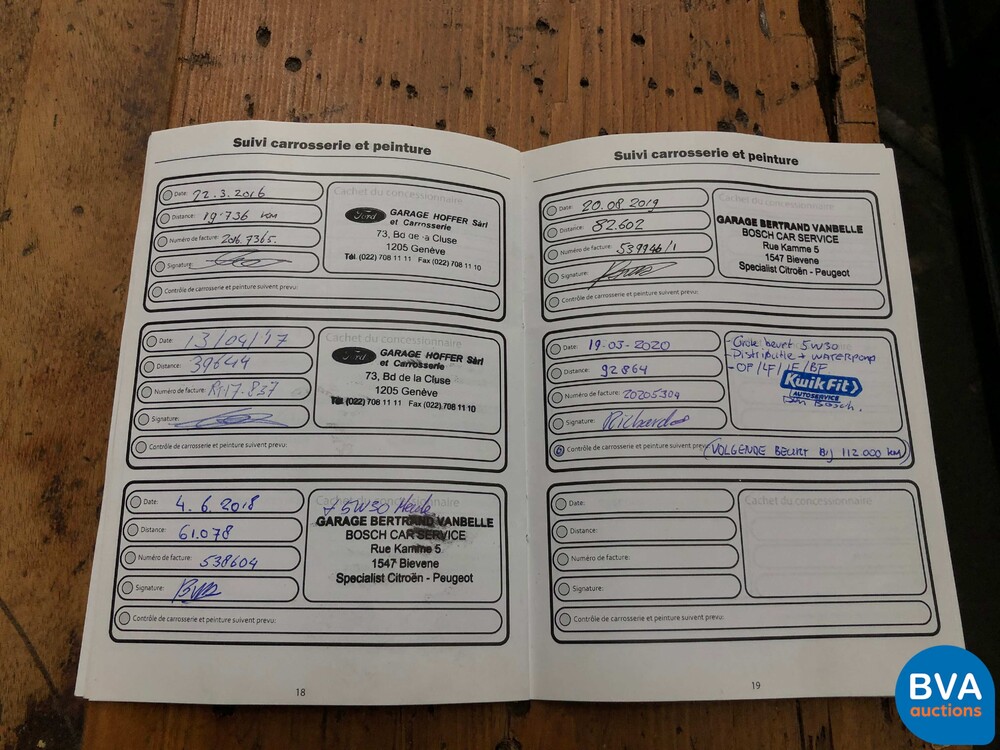 Suivi carrosserie et peinture
Date: 22.3.2016
Distance: 19.736 km
Numéro de facture: 2016.7365.
Signature:
Contrôle de carrosserie et peinture suivent prevu:
Cachet du concessionnaire
Ford GARAGE HOFFER Sàrl
et Carrosserie
73, Bd de la Cluse
1205 Genève
Tél. (022) 708 11 11 Fax (022) 708 11 10
Date: 13/04/'17
Distance: 39644
Numéro de facture: R17.837
Signature:
Contrôle de carrosserie et peinture suivent prevu:
Cachet du concessionnaire
Ford GARAGE HOFFER Sàrl
et Carrosserie
73, Bd de la Cluse
1205 Genève
Tél. (022) 708 11 11 Fax (022) 708 11 10
Date: 4.6.2018
Distance: 61.078
Numéro de facture: 538604
Signature:
Contrôle de carrosserie et peinture suivent prevu:
Cachet du concessionnaire
5W30
GARAGE BERTRAND VANBELLE
BOSCH CAR SERVICE
Rue Kamme 5
1547 Bievene
Specialist Citroën - Peugeot
18
Suivi carrosserie et peinture
Date: 20.08 2019
Distance: 82.602
Numéro de facture: 539946/1
Signature:
Contrôle de carrosserie et peinture suivent prevu:
Cachet du concessionnaire
GARAGE BERTRAND VANBELLE
BOSCH CAR SERVICE
Rue Kamme 5
1547 Bievene
Specialist Citroën - Peugeot
Date: 19-03-2020
Distance: 92864
Numéro de facture: 20205304
Signature: Richard
Contrôle de carrosserie et peinture suivent prevu: (VOLGENDE BEURT BIJ 112 000 km)
- Grote beurt 5W30
- Distributie + waterpomp
- OF/LF/IF/BF
KwikFit
AUTOSERVICE
Den Bosch.
Date:
Distance:
Numéro de facture:
Signature:
Contrôle de carrosserie et peinture suivent prevu:
Cachet du concessionnaire
19
BVA
auctions